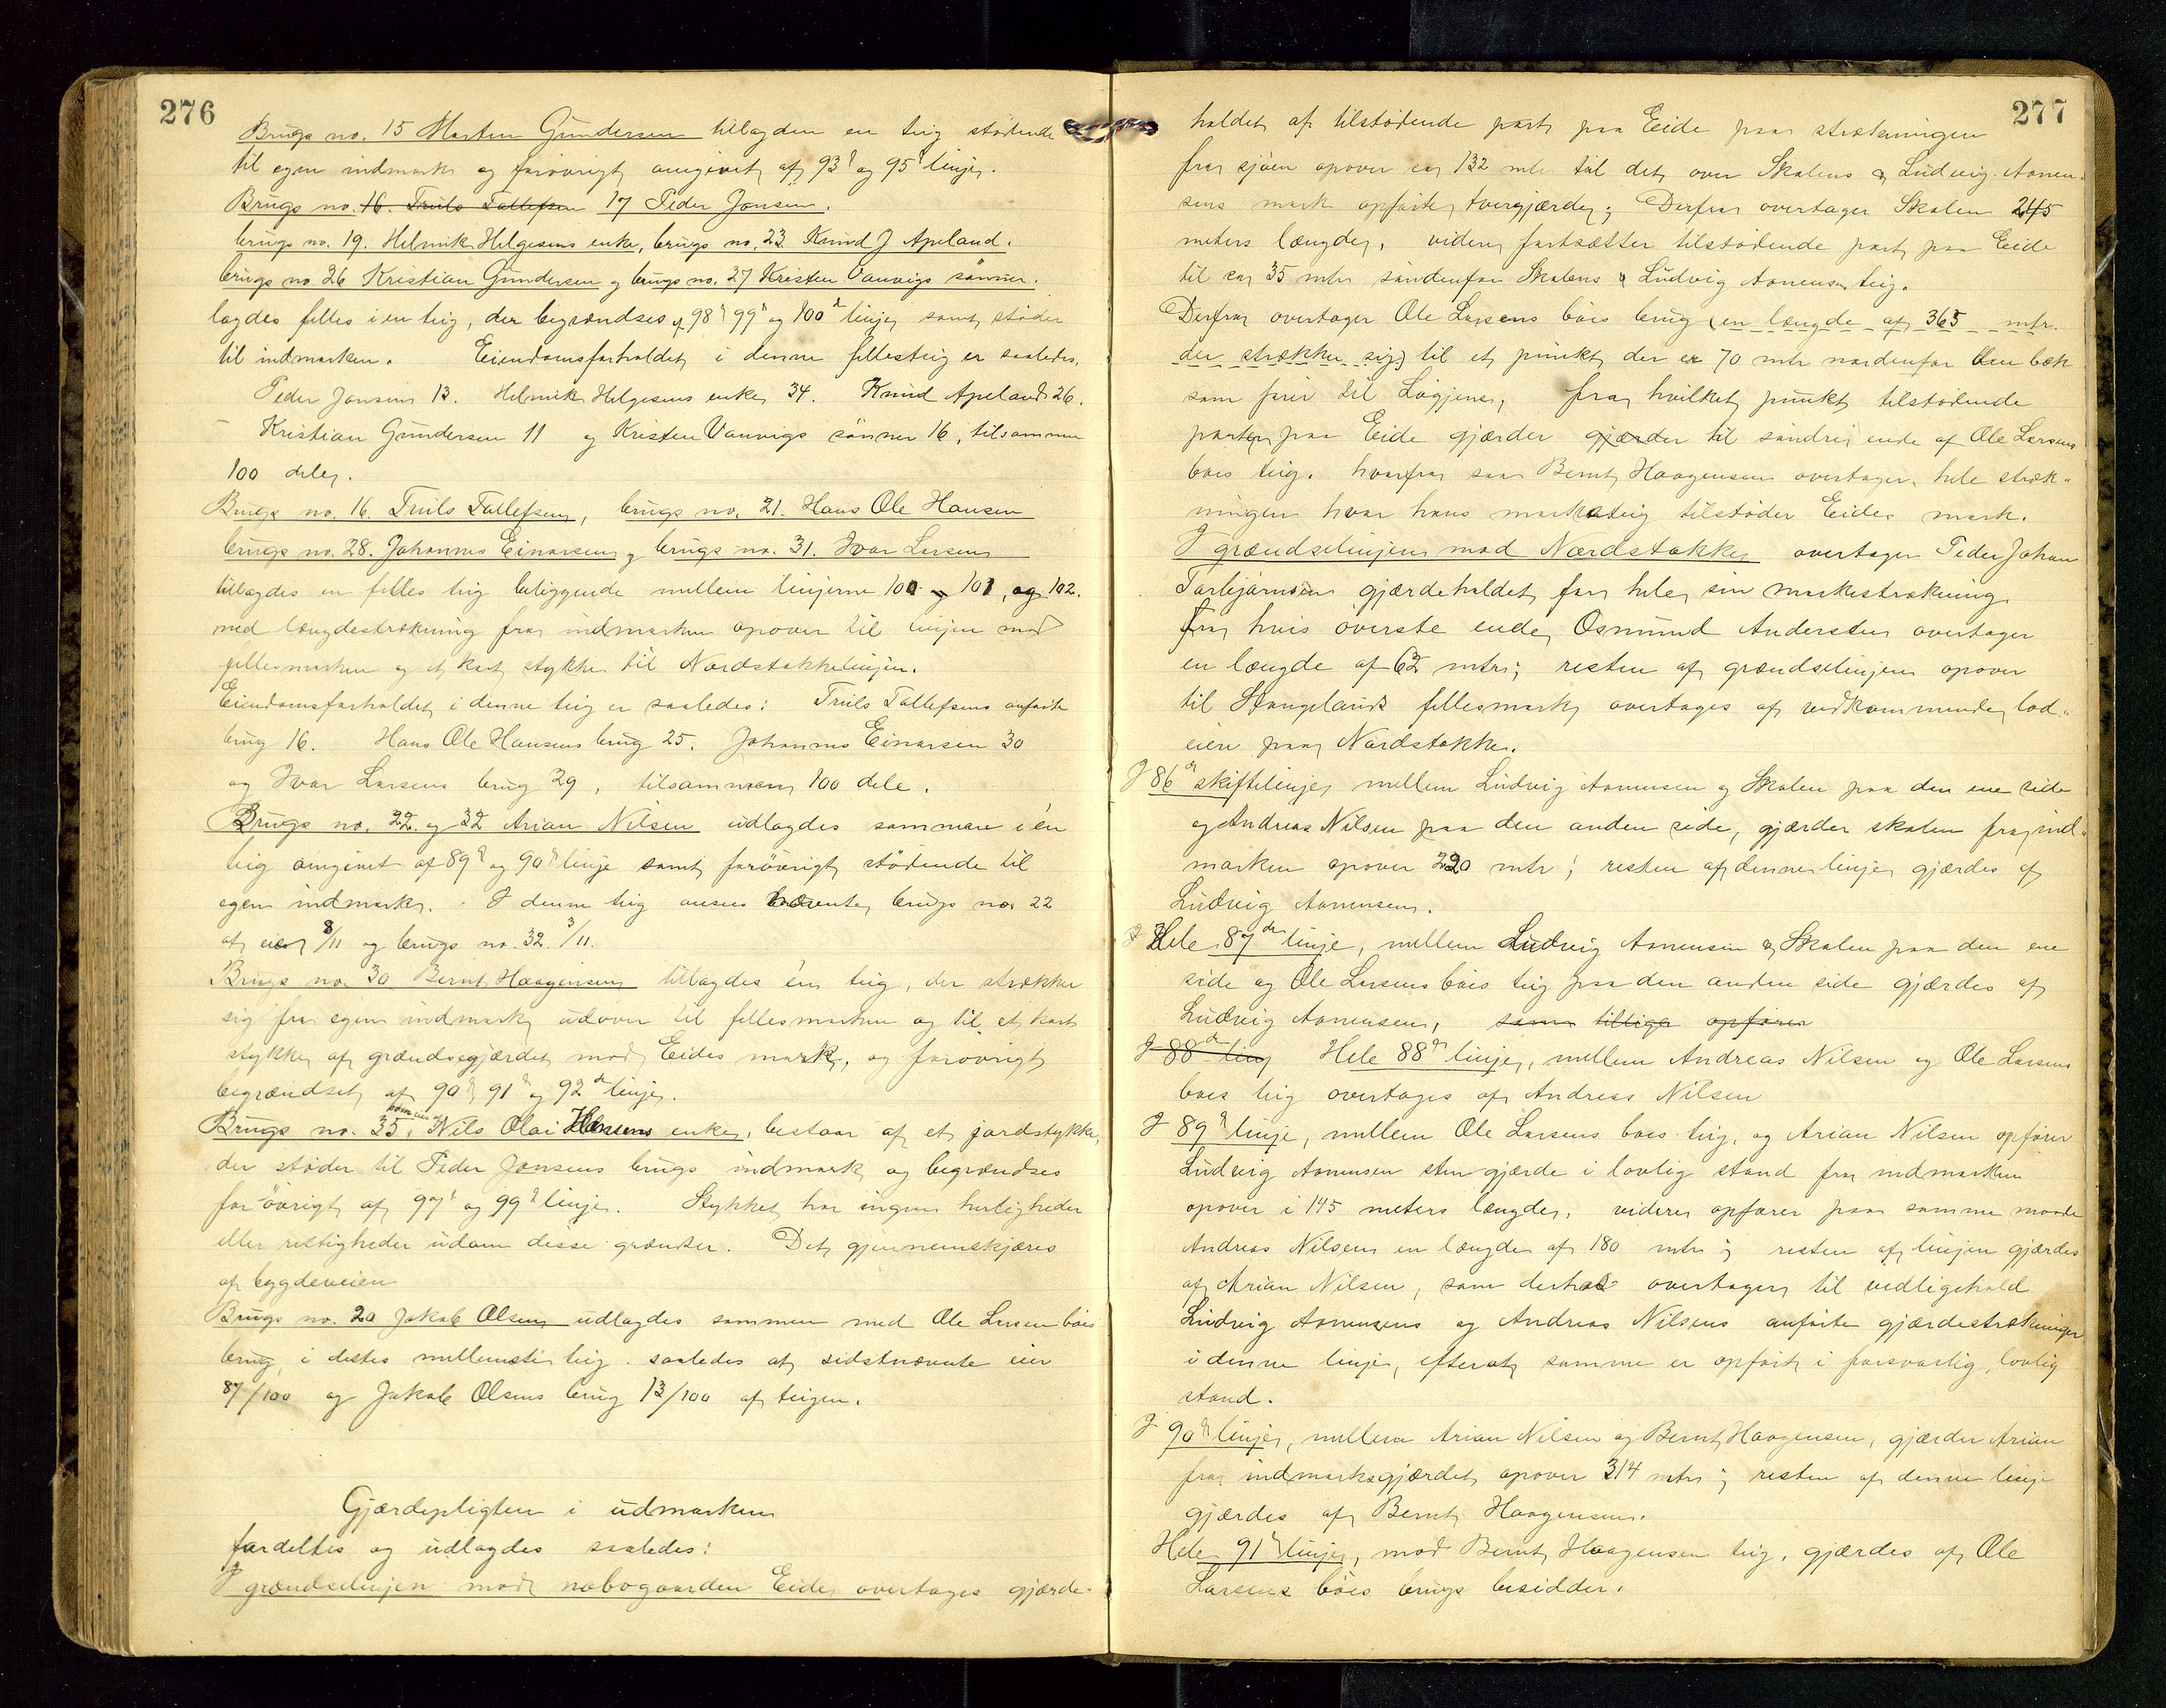 276
Brugs no. 15 Morten Gundersen tillagdes en teig stödende
til egen indmark og forövrigt omgivet af 93d og 95d linje.
Brugs no. 16. Truls Tollefsen 17 Peder Jonsen.
brugs no. 19. Helmik Helgesens enke, brugs no. 23 Knud J Apeland.
brugs no 26 Kristian Gundersen og brugs no. 27 Kristen Vanvigs sönner.
lagdes felles i en teig, der begrændses af 98d 99d og 100d linje samt stöder
til indmarken. Eiendomsforholdet i denne fellesteig er saaledes.
Peder Jonsen 13. Helmik Helgesens enke 34. Knud Apeland 26.
Kristian Gundersen 11 og Kristen Vanvigs sönner 16, tilsammen
100 dele.
Brugs no. 16. Truls Tollefsen, brugs no. 21. Hans Ole Hansen
brugs no. 28. Johannes Einarsen og brugs no. 31. Ivar Larsen
tillagdes en felles teig beliggende mellem linjerne 100 og 101, og 102.
med længdestrækning fra indmarken opover til linjen mod
fellesmarken og et kort stykke til Nordstokkelinjen.
Eiendomsforholdet i denne teig er saaledes: Truls Tollefsens anförte
brug 16. Hans Ole Hansens brug 25. Johannes Einarsen 30
og Ivar Larsens brug 29, tilsammen 100 dele.
Brugs no. 22. og 32 Arian Nilsen udlagdes sammen i én
teig omgivet af 89d og 90d linje samt forövrigt stödende til
egen indmark. I denne teig ansees nævnte brugs no 22
at eie 8/11 og brugs no. 32. 3/11.
Brugs no. 30 Bernt Haagensen tillagdes én teig, der strækker
sig fra egen indmark udover til fellesmarken og til et kort
stykke af grændsegjærdet mod Eides mark, og forövrigt
begrændset af 90d 91d og 92d linje.
Brugs no. 35, som eies af Nils Olai Hansens enke, bestaar af et jordstykke,
der stöder til Peder Jonsens brugs indmark og begrændses
forövrigt af 97d og 99d linje. Stykket har ingen herligheder
eller rettigheder udom disse grænser. Det gjennemskjæres
af bygdeveien
Brugs no. 20 Jakob Olsen udlagdes sammen med Ole Larsen böes
brug, i dettes mellemste teig saaledes at sidstnævnte eier
87/100 og Jakob Olsens brug 13/100 af teigen.
Gjærdepligten i udmarken
fordeltes og udlagdes saaledes:
I grændselinjen mod nabogaarden Eide overtages gjærde-
277
holdet af tilstödende part paa Eide paa strækningen
fra sjöen opover ca 132 mtr til det over Skolens & Ludvig Aanen-
sens mark opförte tvergjærde; Derfra overtager Skolen 245
meters længde, videre fortsætter tilstödende part paa Eide
til ca 35 mtr söndenfor Skolens & Ludvig Aanensens teig.
Derfra overtager Ole Larsens böes brug (en længde af 365 mtr.
der strækker sig) til et punkt der er 70 mtr nordenfor den bæk
som förer til Lögjene, fra hvilket punkt tilstödende
parter paa Eide gjærder gjærder til söndre ende af Ole Larsens
böes teig. hvorfra saa Bernt Haagensen overtager hele stræk-
ningen hvor hans markateig tilstöder Eides mark.
I grændselinjen mod Nordstokke overtager Peder Johan
Torbjörnsen gjærdeholdet for hele sin markestrækning
fra hvis överste ende Osmund Andersen overtager
en længde af 62 mtr; resten af grændselinjen opover
til Stangelands fellesmark overtages af vedkommende lod-
eiere paa Nordstokke.
I 86d skiftelinje mellem Ludvig Aanensen og Skolen paa den ene side
og Andreas Nilsen paa den anden side, gjærder skolen fra ind-
marken opover 220 mtr; resten af denne linje gjærdes af
Ludvig Aanensen.
I Hele 87de linje, mellem Ludvig Aanensen & Skolen paa den ene
side og Ole Larsens böes teig paa den anden side gjærdes af
Ludvig Aanensen, som tillige opförer
I 88d linj Hele 88d linje, mellem Andreas Nilsen og Ole Larsens
böes teig overtages af Andreas Nilsen
I 89d linje, mellem Ole Larsens böes teig, og Arian Nilsen opförer
Ludvig Aanensen stengjærde i lovlig stand fra indmarken
opover i 145 meters længde, videre opförer paa samme maade
Andreas Nilsen en længde af 180 mtr; resten af linjen gjærdes
af Arian Nilsen, som derhos overtager til vedligehold
Ludvig Aanensens og Andreas Nilsens anförte gjærdestrækninger
i denne linje, efterat samme er opfört i forsvarlig, lovlig
stand.
I 90d linje, mellem Arian Nilsen og Bernt Haagensen, gjærder Arian
fra indmarksgjærdet opover 314 mtr; resten af denne linje
gjærdes af Bernt Haagensen.
Hele 91d linje, mod Bernt Haagensen teig, gjærdes af Ole
Larsens böes brugs besidder.